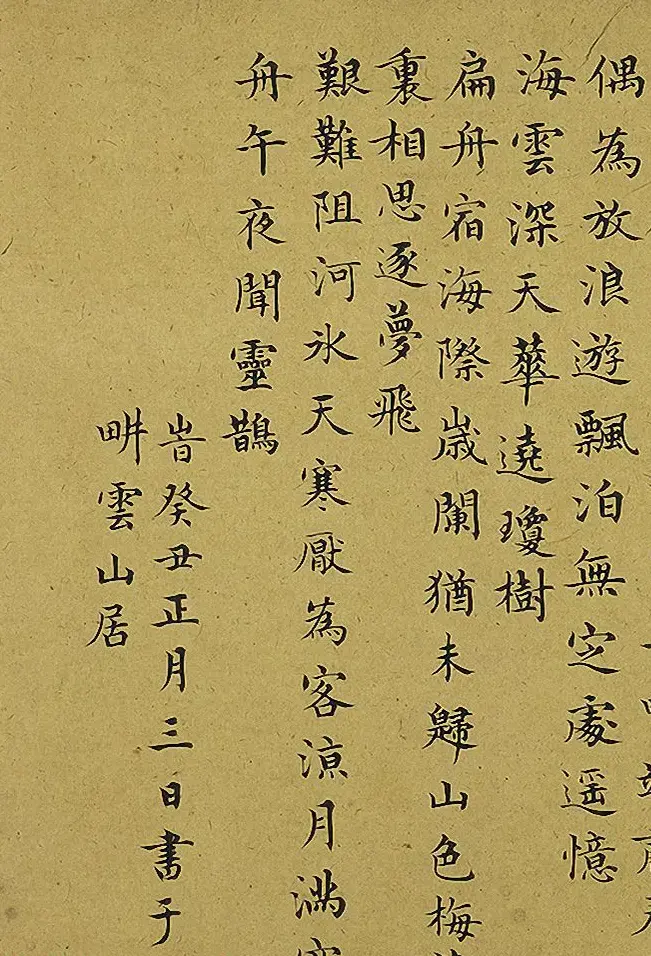 偶為放浪遊飄泊無定處遥憶
海雲深天華遶瓊樹
扁舟宿海際歲闌猶未歸山色梅
裏相思逐夢飛
艱難阻河氷天寒厭為客涼月滿
舟午夜聞靈鵲
旹癸丑正月三日書于
畊雲山居